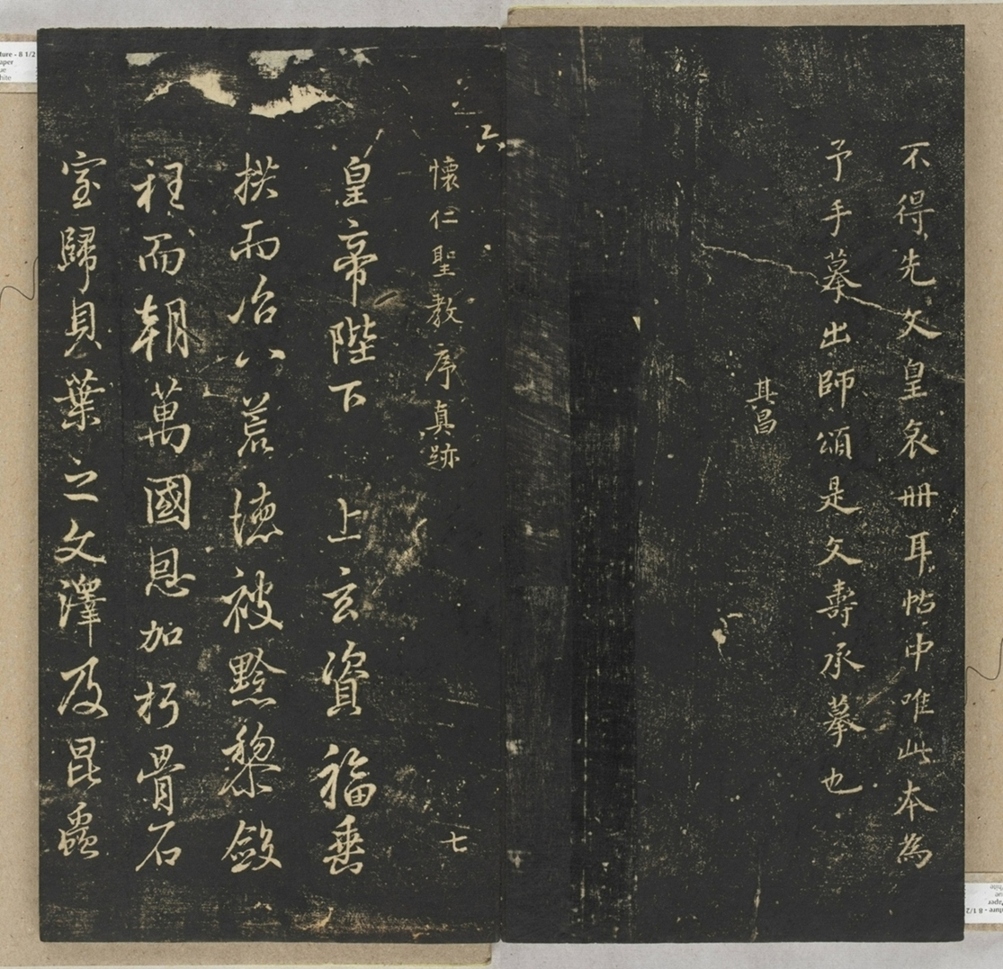 不得先文皇哀冊耳帖中唯此本為
予手摹出師頌是文壽承摹也
其昌
六
懷仁聖教序真跡
七
皇帝陛下 上玄資福垂
拱而治八荒德被黔黎斂
衽而朝萬國恩加朽骨石
室歸貝葉之文澤及昆蟲